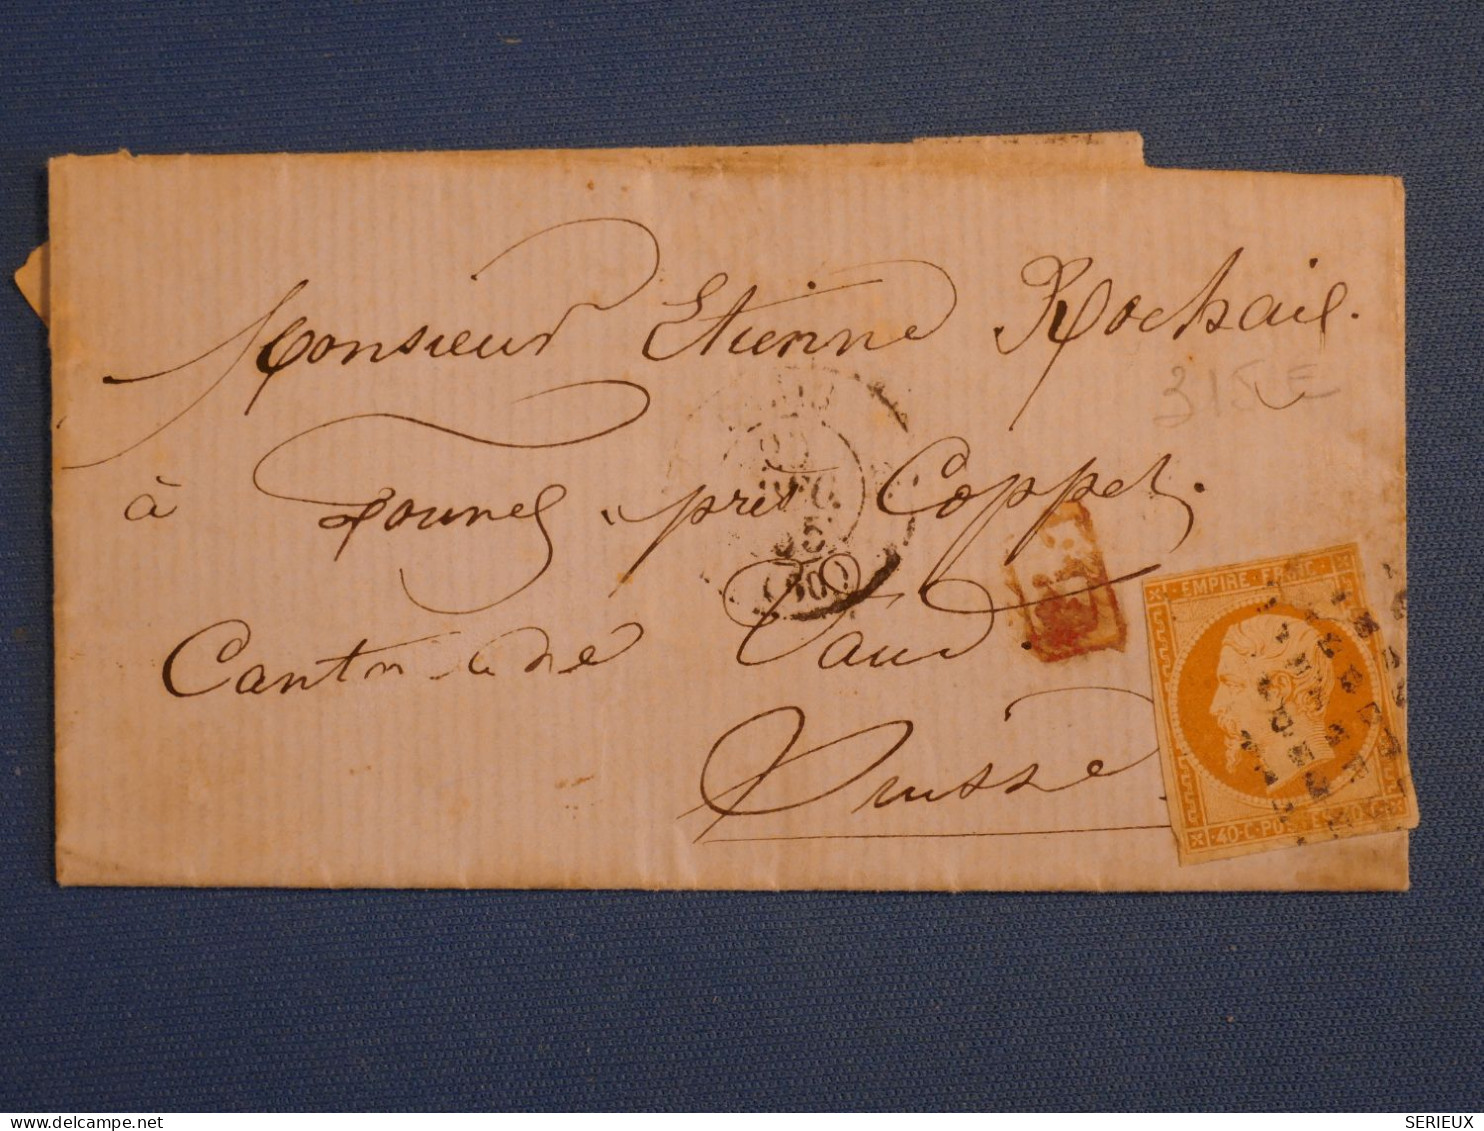 Monsieur Etienne Rochaix.
315 E
à Founex près Coppet.
DEC.
55
(60)
P.D.
Canton de Vaud
Suisse
EMPIRE FRANC.
40 C POSTES 40 C
delcampe.net
SERIEUX